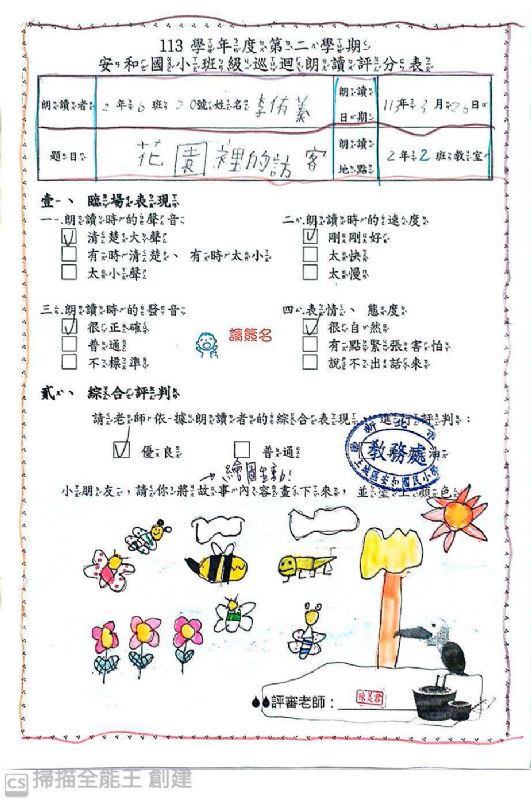 113 學年度第二學期
安和國小班級巡迴朗讀評分表
朗讀者 2年6班20號姓名 李侑蓁 朗讀日期 113年3月26日
題目 花園裡的訪客 朗讀地點 2年2班教室
壹、臨場表現
一、朗讀時的聲音 二、朗讀時的速度
清楚大聲 剛剛好
有時清楚、有時太小 太快
太小聲 太慢
三、朗讀時的發音 四、表情、態度
很正確 很自然
普通 有點緊張害怕
不標準 說不出話來
請簽名
貳、綜合評判
請老師依據朗讀者的綜合表現進行評判：
優良 普通
新北市
教務處
土城區安和國民小學
繪圖生動!
小朋友，請你將故事內容畫下來，並塗上顏色
評審老師：
CS 掃描全能王 創建